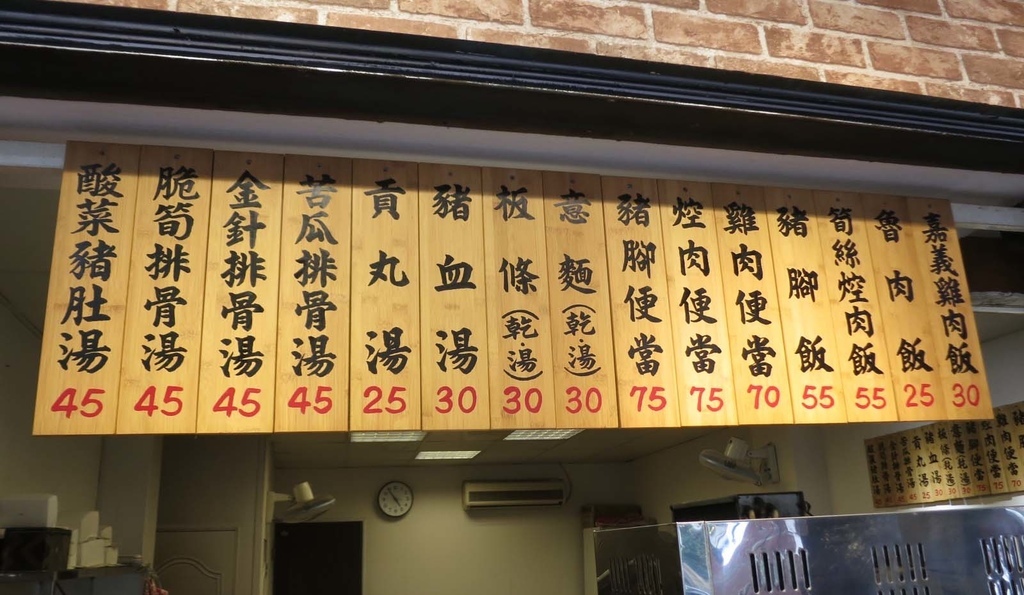 嘉義雞肉飯 30
魯肉飯 25
筍絲焢肉飯 55
豬腳飯 55
雞肉便當 70
焢肉便當 75
豬腳便當 75
意麵(乾湯) 30
板條(乾湯) 30
豬血湯 30
貢丸湯 25
苦瓜排骨湯 45
金針排骨湯 45
脆筍排骨湯 45
酸菜豬肚湯 45